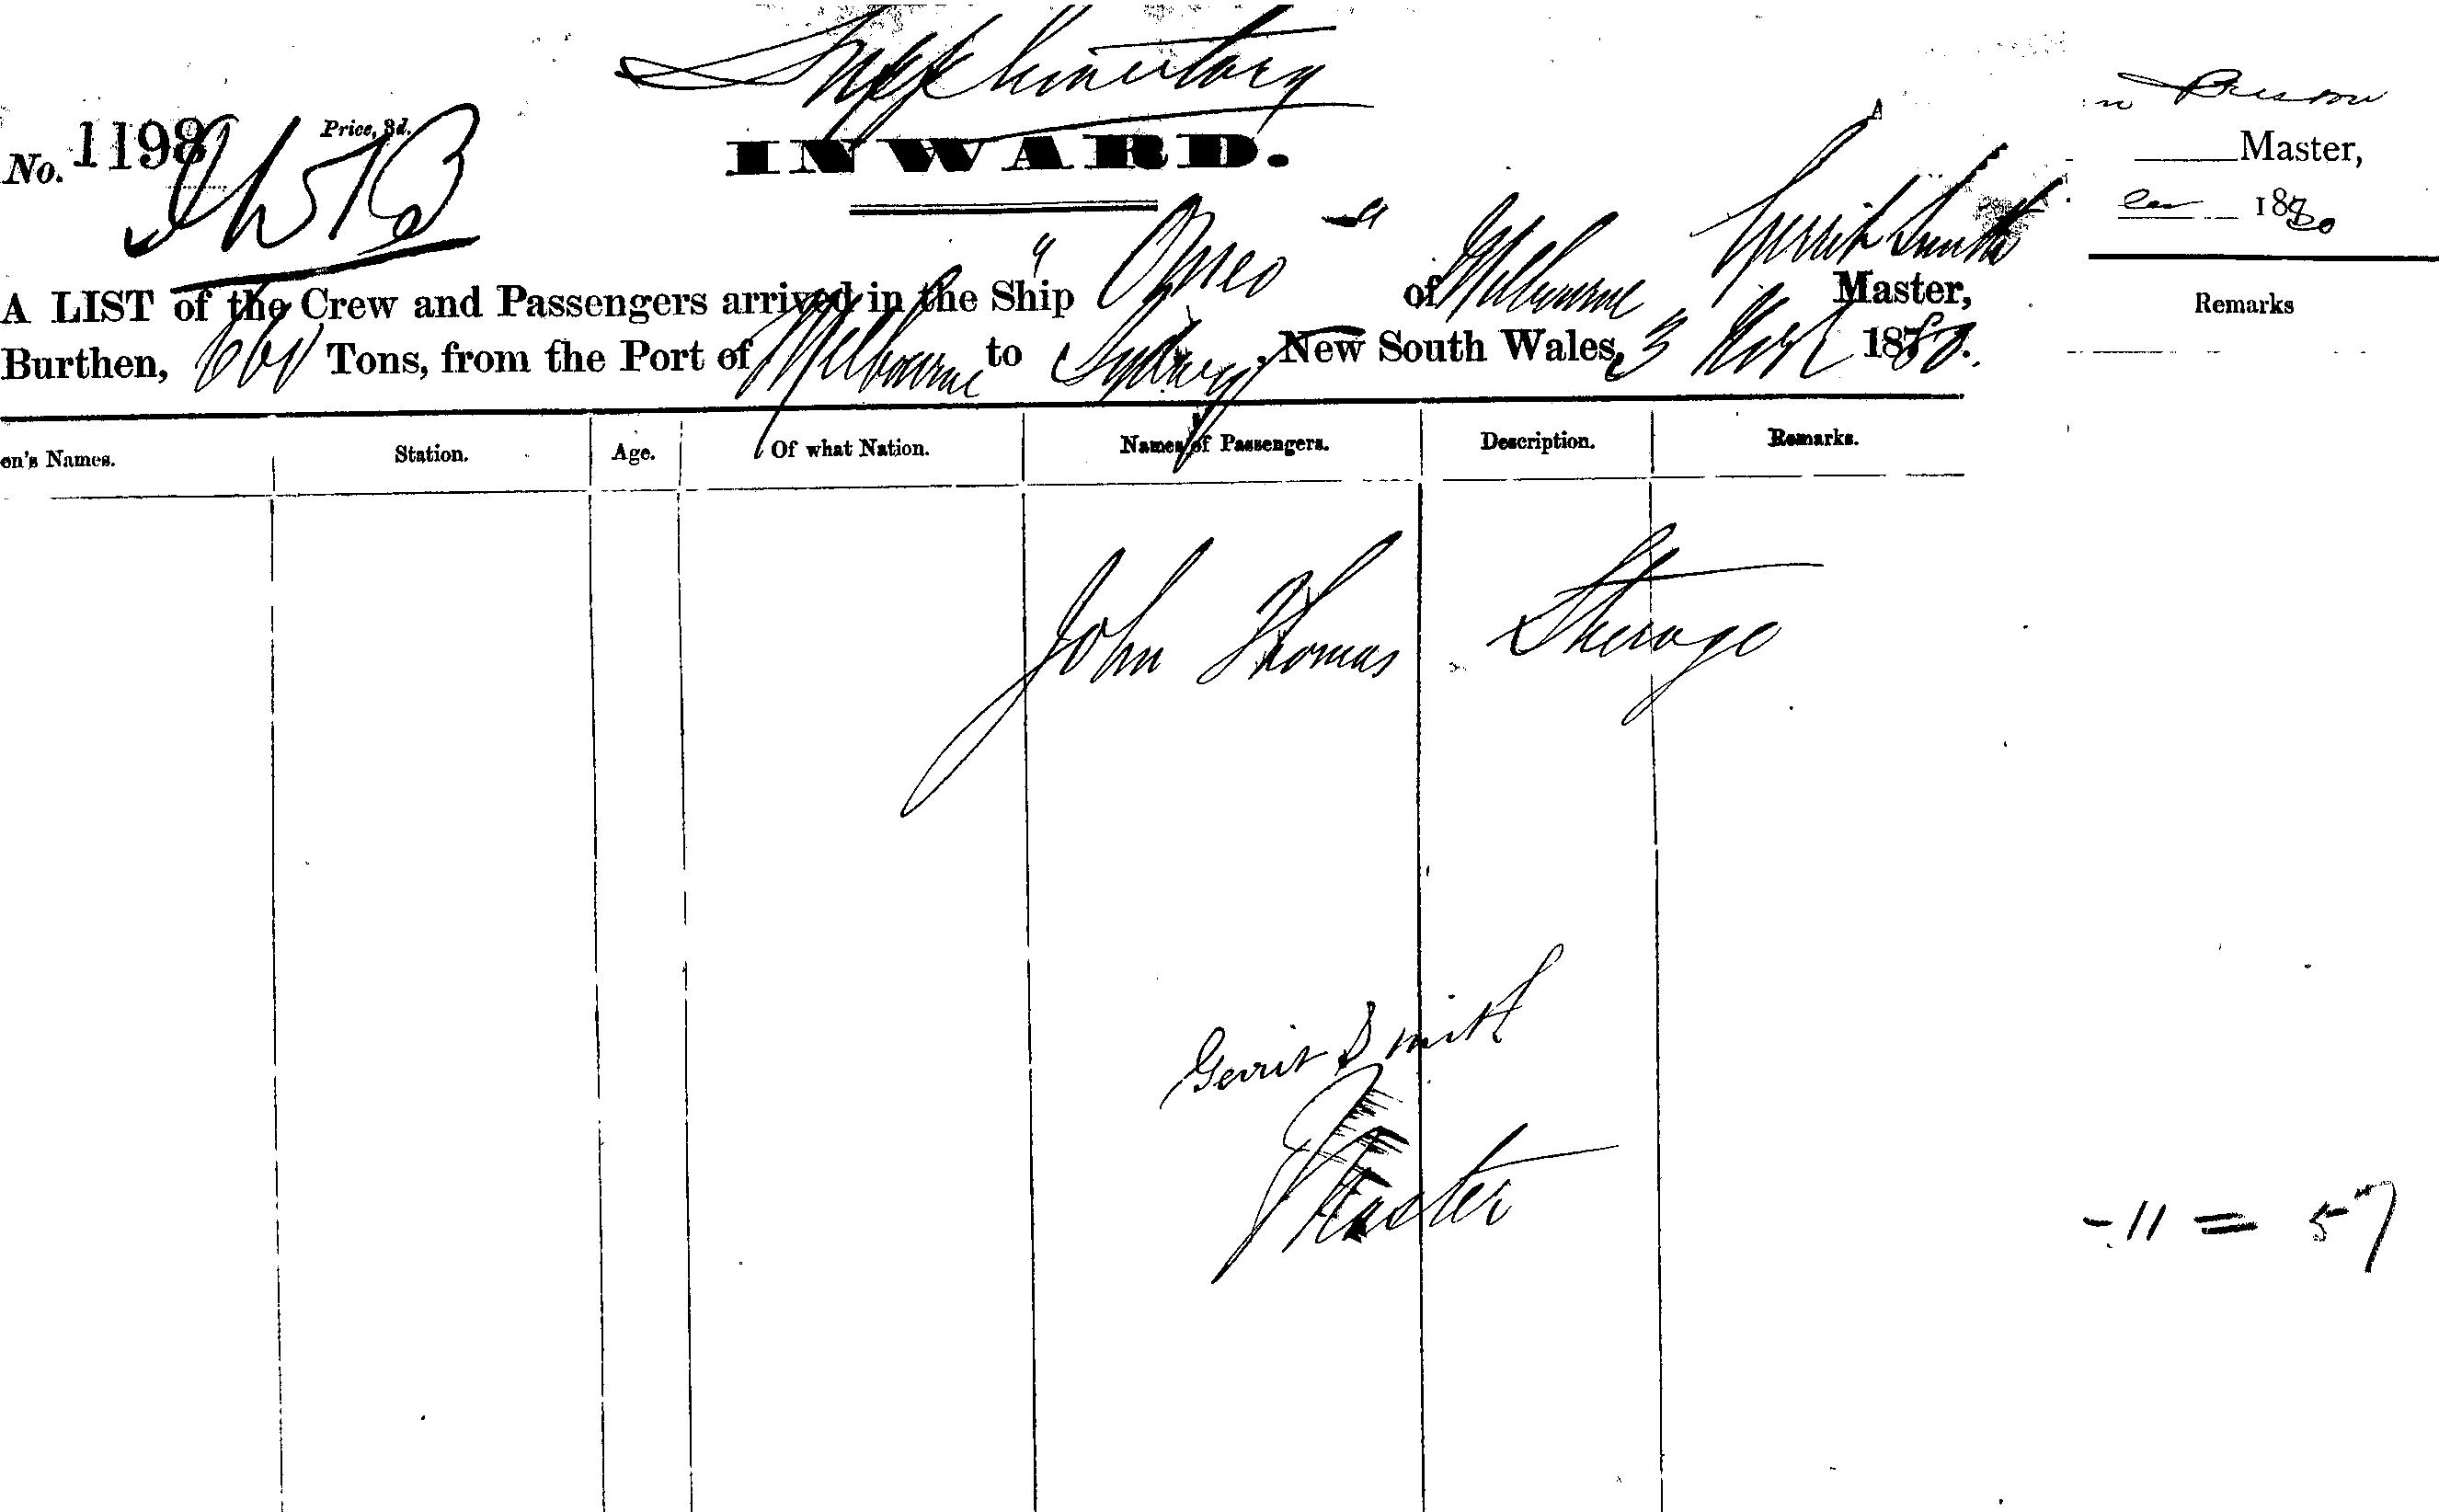 Supplementary
No. 1198
Price, 3d.
INWARD.
A LIST of the Crew and Passengers arrived in the Ship "Omeo" of Melbourne Gerrit Smith Master,
Burthen, Tons, from the Port of Melbourne to Sydney, New South Wales, 3 1880.
en's Names. Station. Age. Of what Nation. Names of Passengers. Description. Remarks.
John Thomas Steerage
Gerrit Smith
Master
Master,
1880
Remarks
-11 = 57